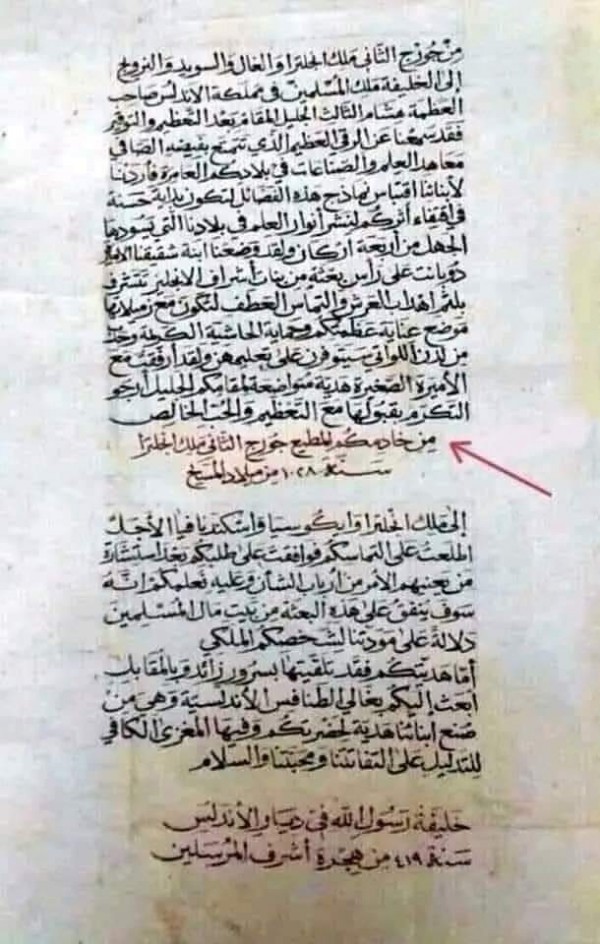 مِن جُورج الثَّاني مَلك انجلترَا وَالغَال وَالسويد وَالنرويج
إلى الخليفَة مَلك المُسْلمِين في مملكة الاندلس صَاحب
العظمة هشام الثالث الجليل المقام بَعْد التَّعظيم وَالتوقير
فقد سمِعْنا عَن الرقي العَظيم الذي تتمتع بفَيضِه الصَّافي
معاهد العلم وَالصِّناعات في بلادكم العَامرة فأردنا
لأبنائنا اقتباسَ نماذج هذه الفضائل لتكون بداية حسنة
في اقتفاء أثركم لنشر أنوار العلم في بلادنا التي يسودها
الجهل من أربعة أركان وَلقد وضعنا ابنة شقيقنا الأميرة
دوبانت على رأس بعثة من بنات أشراف الانجليز تتشرف
بلثم أهداب العَرش وَالتماس العَطف لتكون مع زميلاتها
موضع عناية عظمتكم وحماية الحاشية الكريمة وحدب
من لدن اللواتي سيتوفرن على تعليمهن ولقد أرفقت مع
الأميرة الصَّغيرة هدية متواضعة لمقامكم الجليل أرجو
التكرم بقبولها مَع التَّعظيم وَالحُب الخَالِص
مِن خادمكم المطيع جورج الثاني ملك انجلترا
سَنة ١٠٢٨ من ميلاد المسيح
إلى مَلك انجلترا وَايكوسيا وَاسكندنافيا الأجَل
اطلعت على التماسكم فوافقت على طلبكم بعد استشارة
من يعنيهم الأمر من أرباب الشأن وعليه نعلمكم انَّه
سوف ينفق على هذه البعثة من بيت مال المسلمين
دلالة على مودتنا لشخصكم الملكي
أمَا هديتكم فقد تلقيتها بسرور زائد وَبالمقابل
أبعَث إليكم بغَالي الطنافس الأندلسيَّة وَهي من
صُنع أبنائنا هديَة لحضرتكم وَفيها المَغزى الكافي
للتدليل على التفاتتنا ومحبَتنا وَالسلام
خَليفَة رَسُول الله في ديار الأندلس
سَنة ٤١٩ من هِجرة أشرف المرسَلين